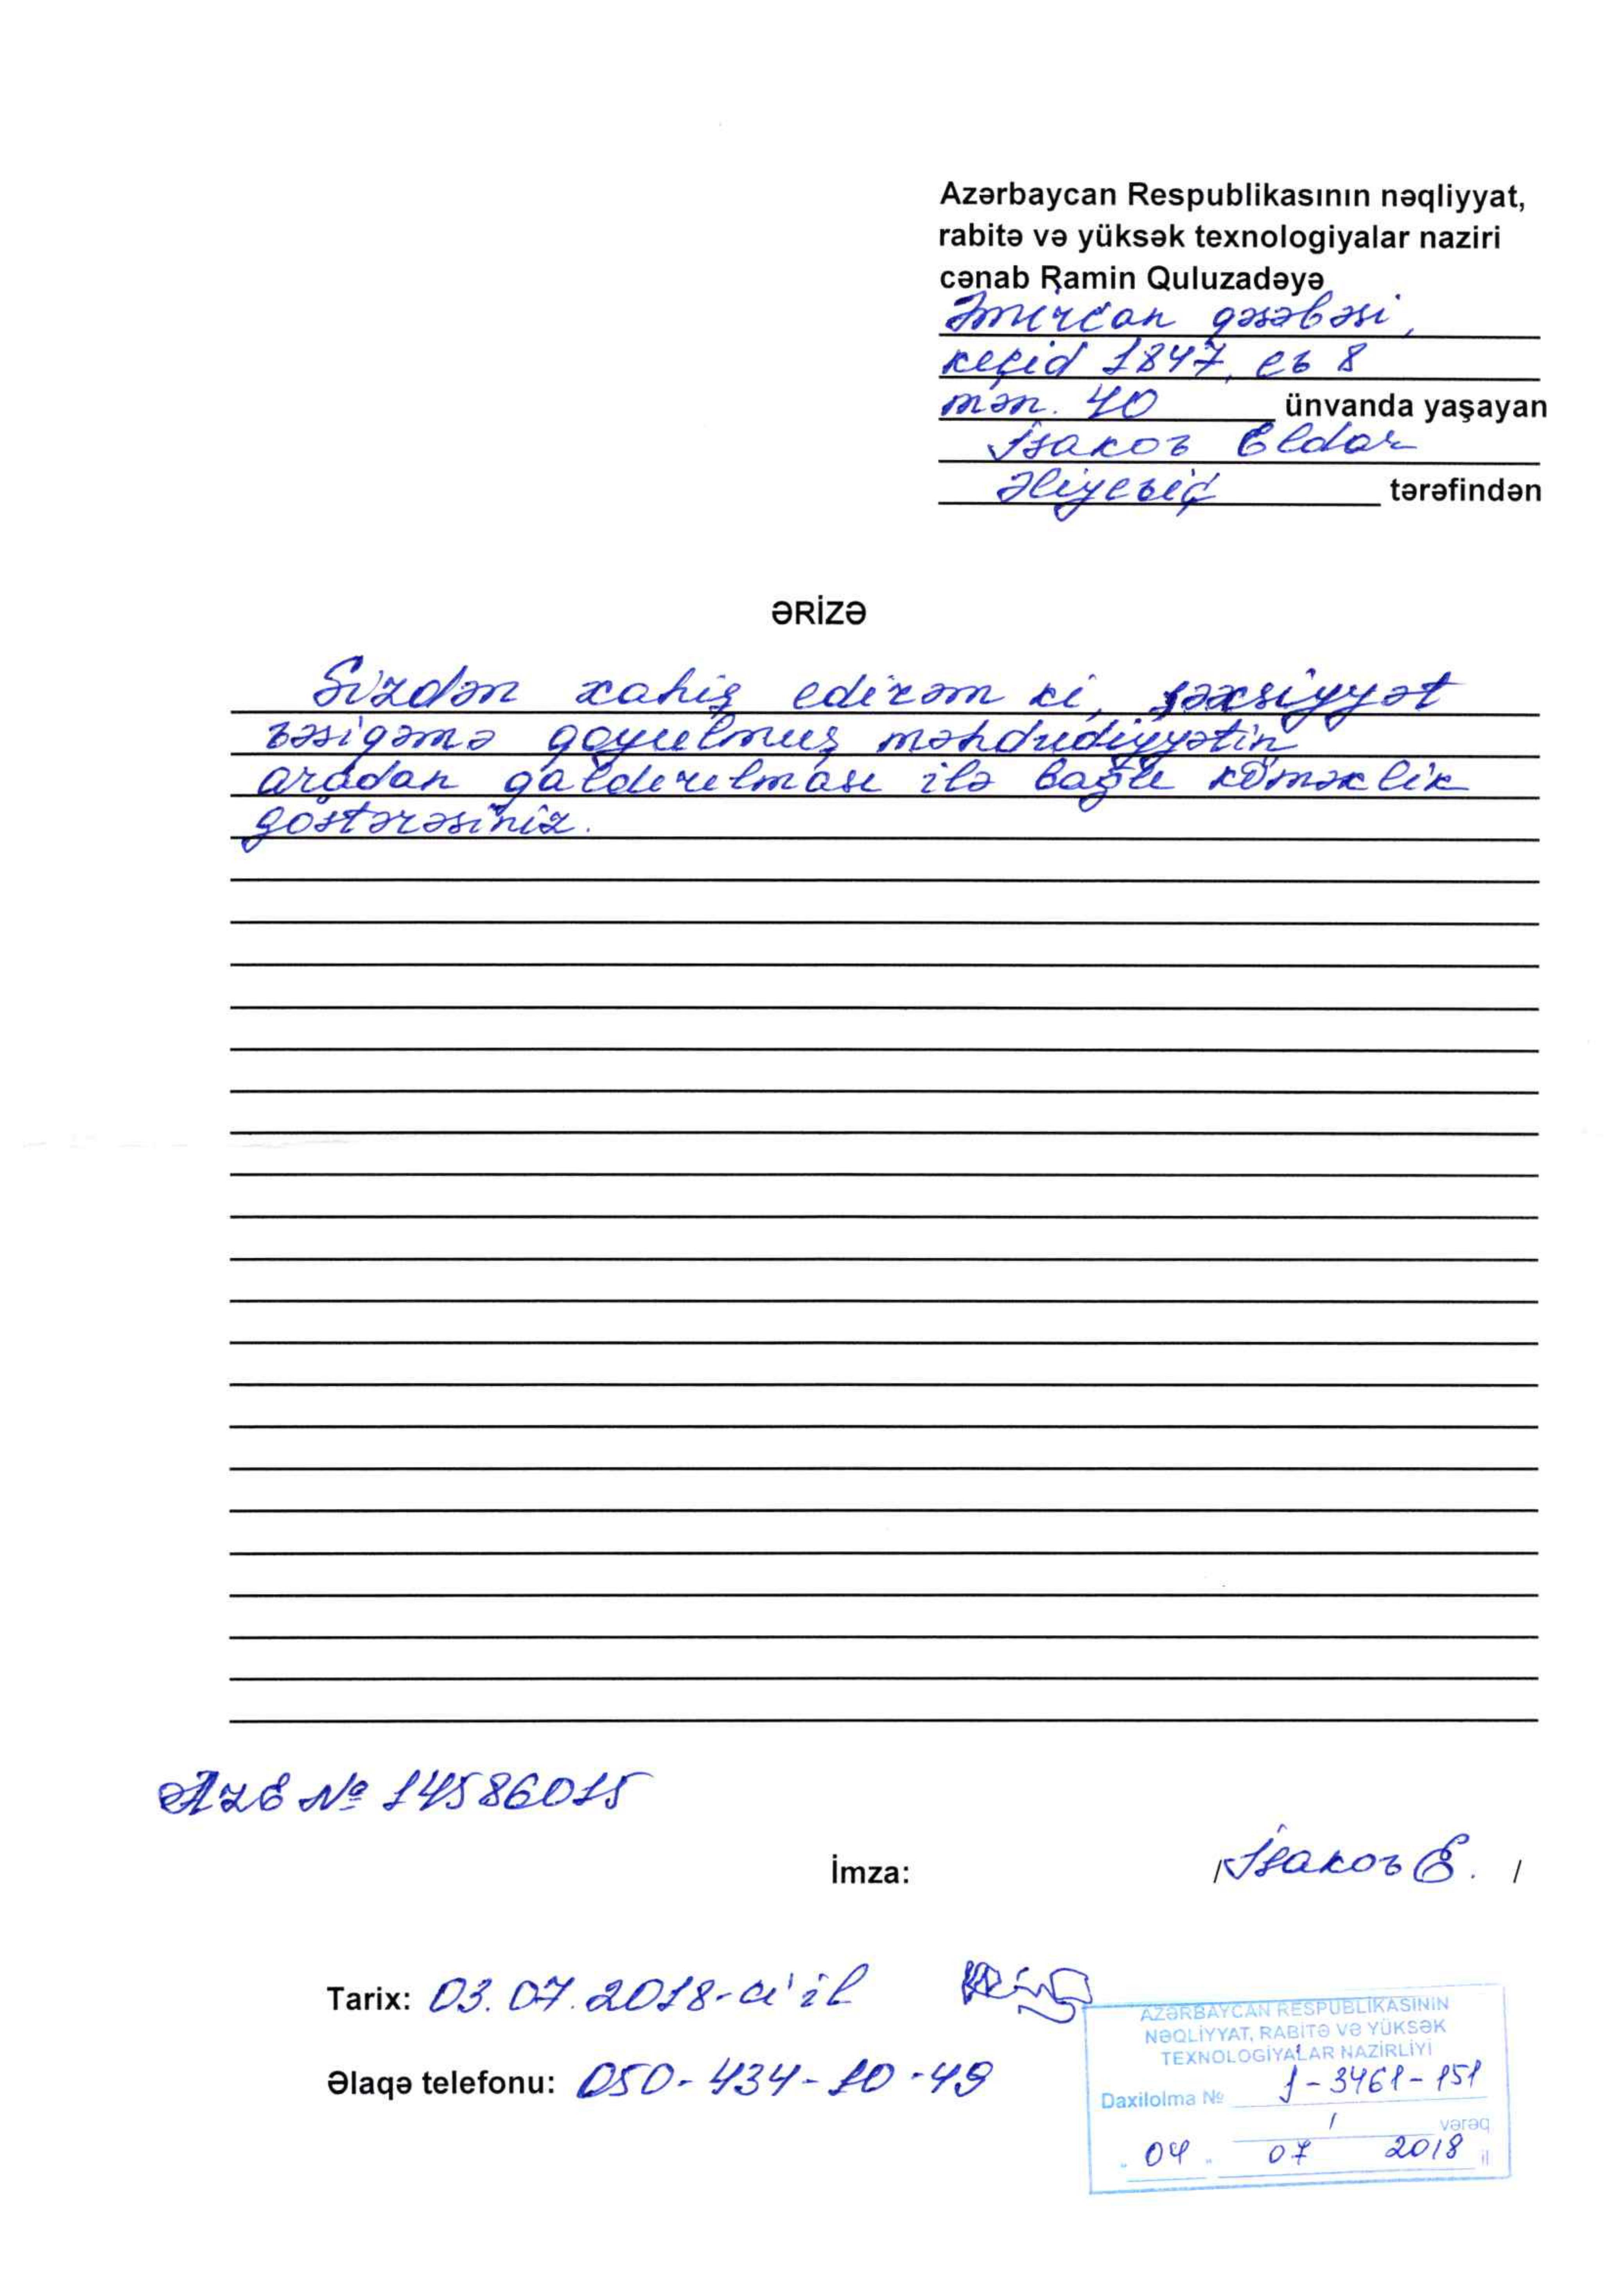 Azərbaycan Respublikasının nəqliyyat,
rabitə və yüksək texnologiyalar naziri
cənab Ramin Quluzadəyə
Əmircan qəsəbəsi,
keçid 1847, ev 8
mən. 40 ünvanda yaşayan
İsakov Eldar
Əliyeviç tərəfindən
ƏRİZƏ
Sizdən xahiş edirəm ki, şəxsiyyət
vəsiqəmə qoyulmuş məhdudiyyətin
aradan qaldırılması ilə bağlı köməklik
göstərəsiniz.
AZE № 14586015
İmza: /İsakov E. /
Tarix: 03.07.2018-ci il
Əlaqə telefonu: 050-434-10-49
AZƏRBAYCAN RESPUBLİKASININ
NƏQLİYYAT, RABİTƏ VƏ YÜKSƏK
TEXNOLOGİYALAR NAZİRLİYİ
Daxilolma № J-3461-151
1 vərəq
"04" 07 2018 il